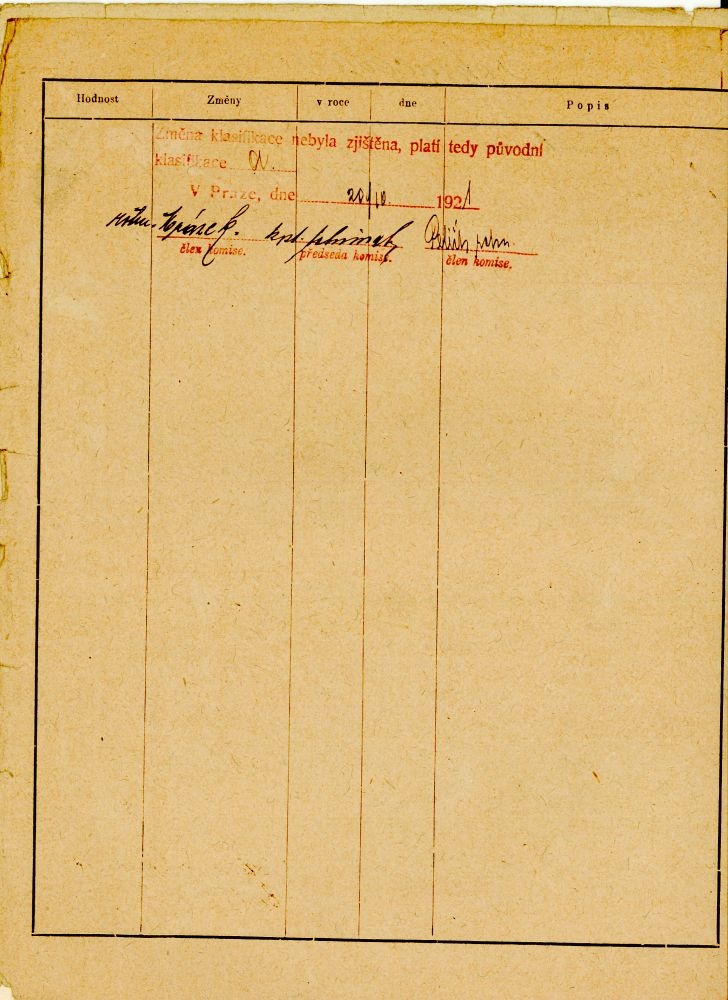 Hodnost Změny v roce dne Popis
Změna klasifikace nebyla zjištěna, platí tedy původní
klasifikace
V Praze, dne 20/10 1921
kpt.
člen komise. předseda komise. člen komise.